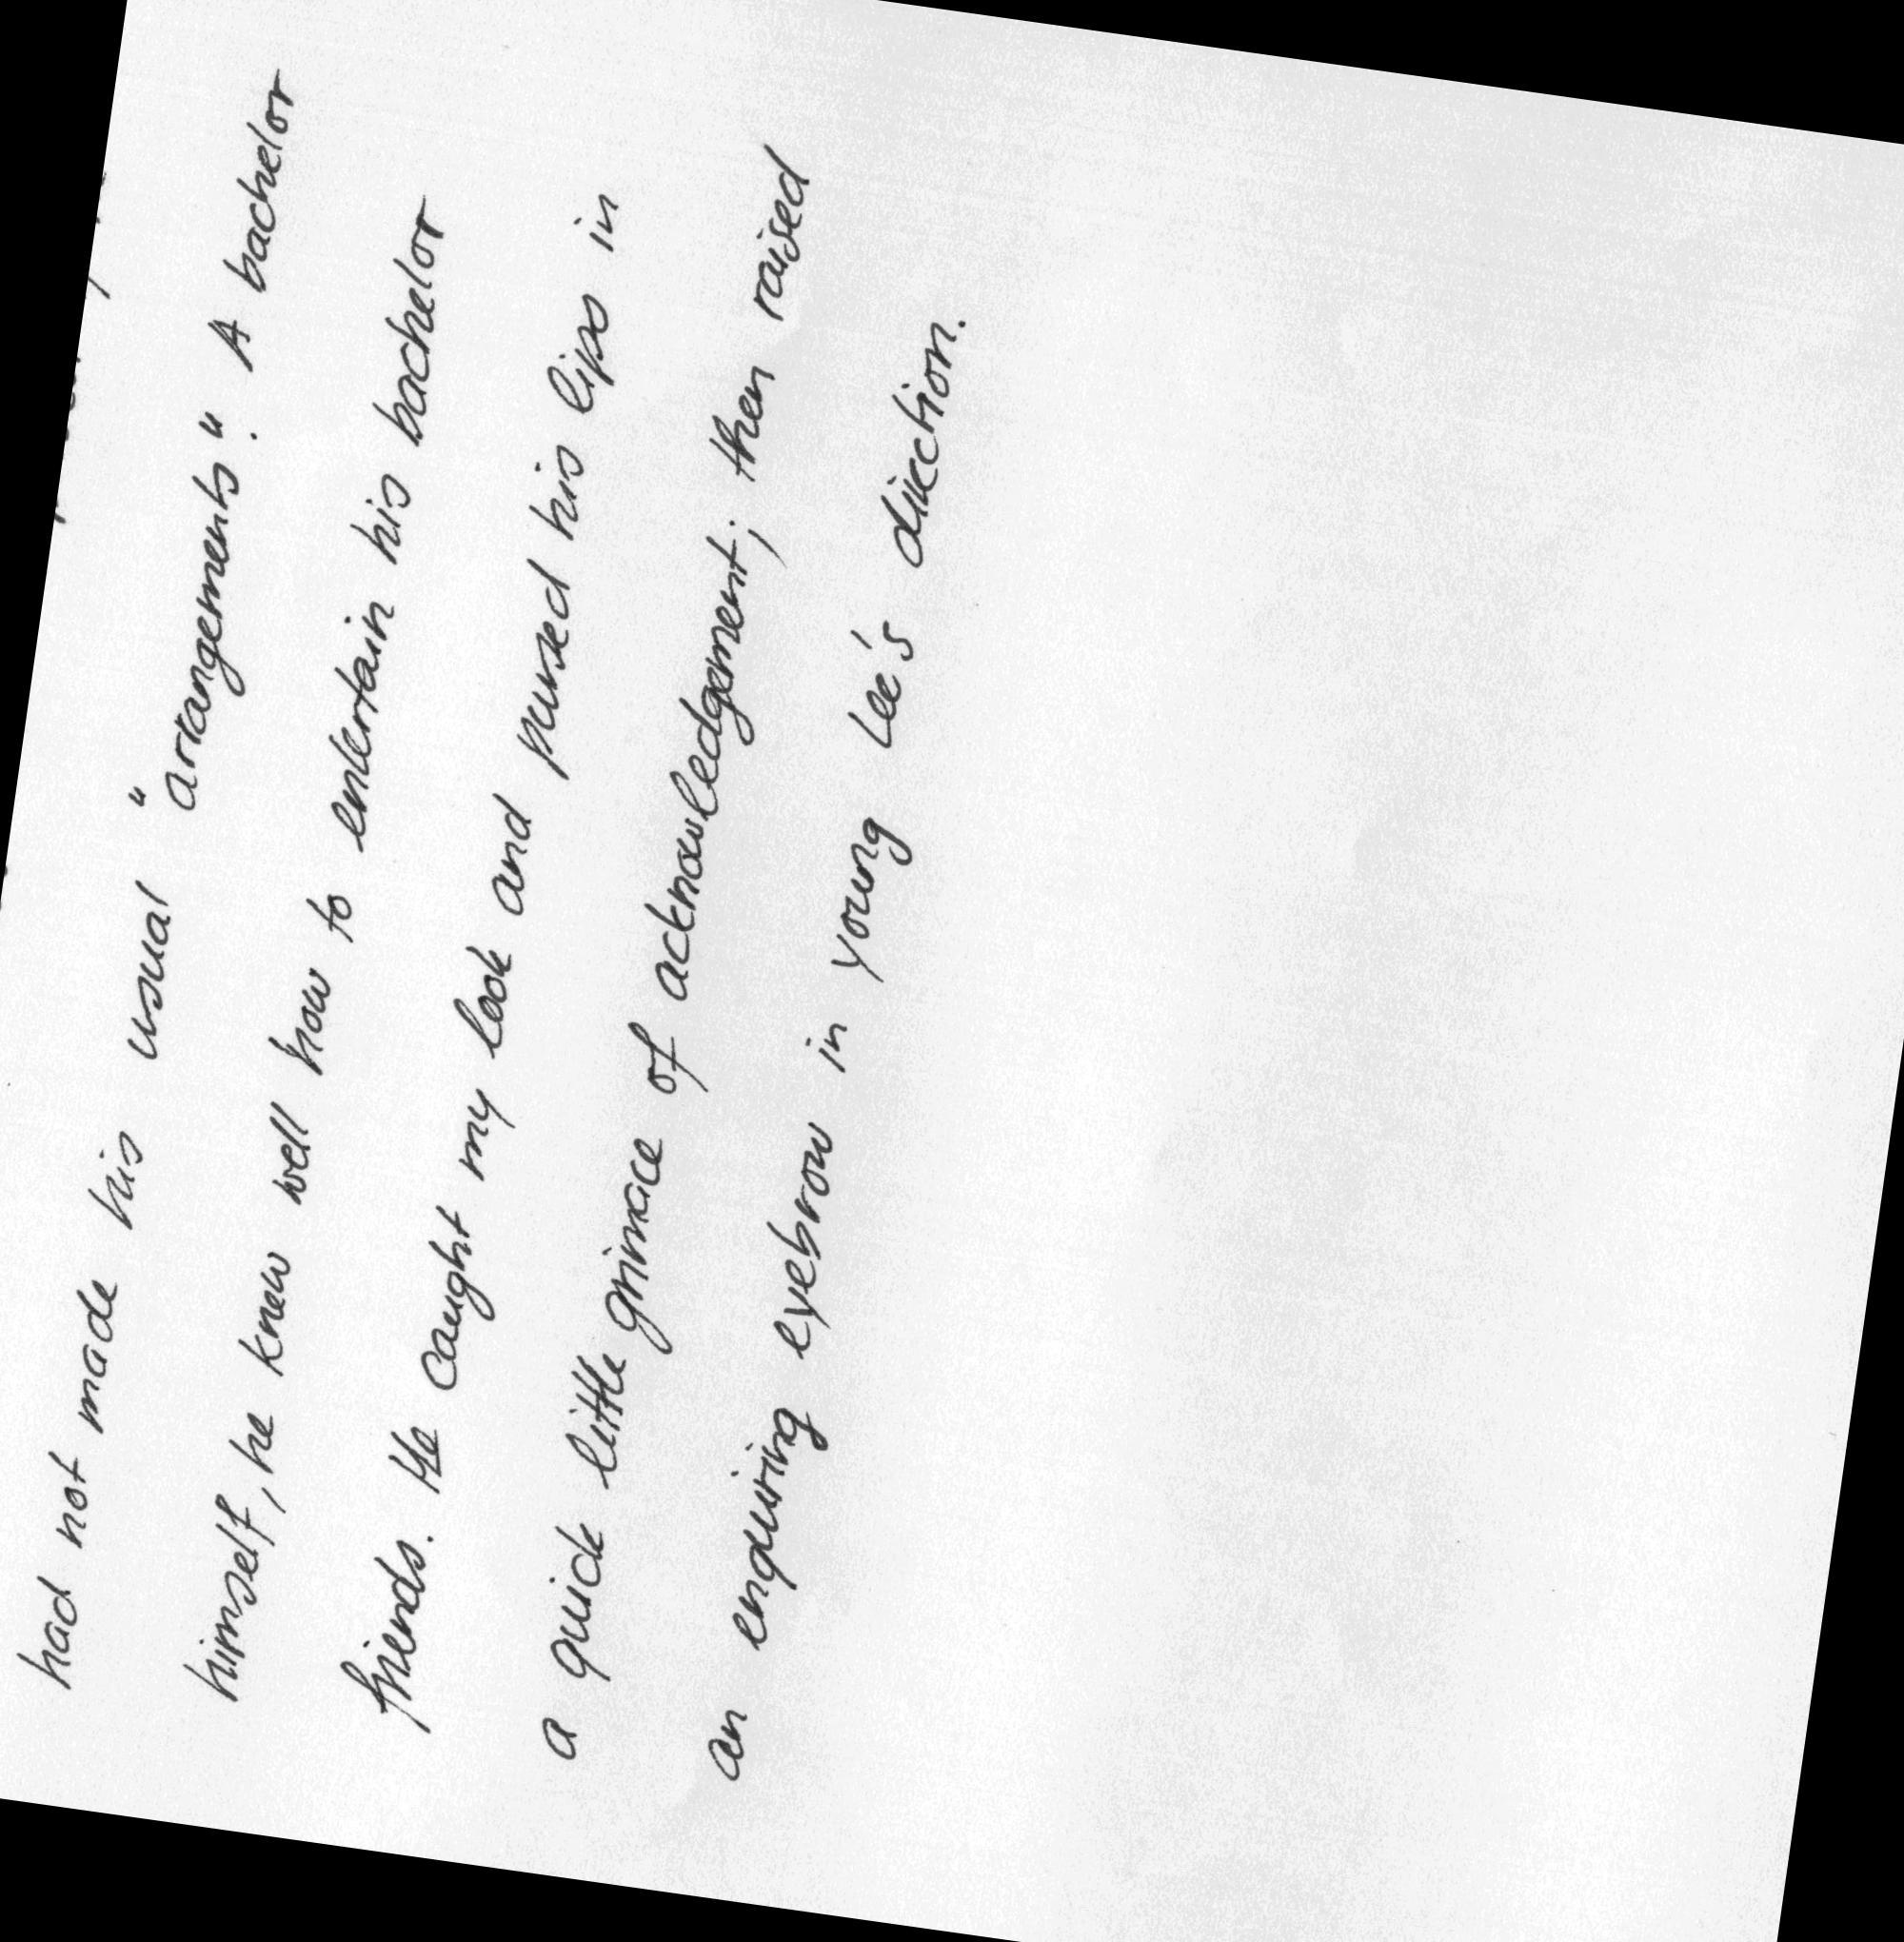 had not made his usual "arrangements". A bachelor
himself, he knew well how to entertain his bachelor
friends. He caught my look and pursed his lips in
a quick little grimace of acknowledgement; then raised
an enquiring eyebrow in young Lee's direction.